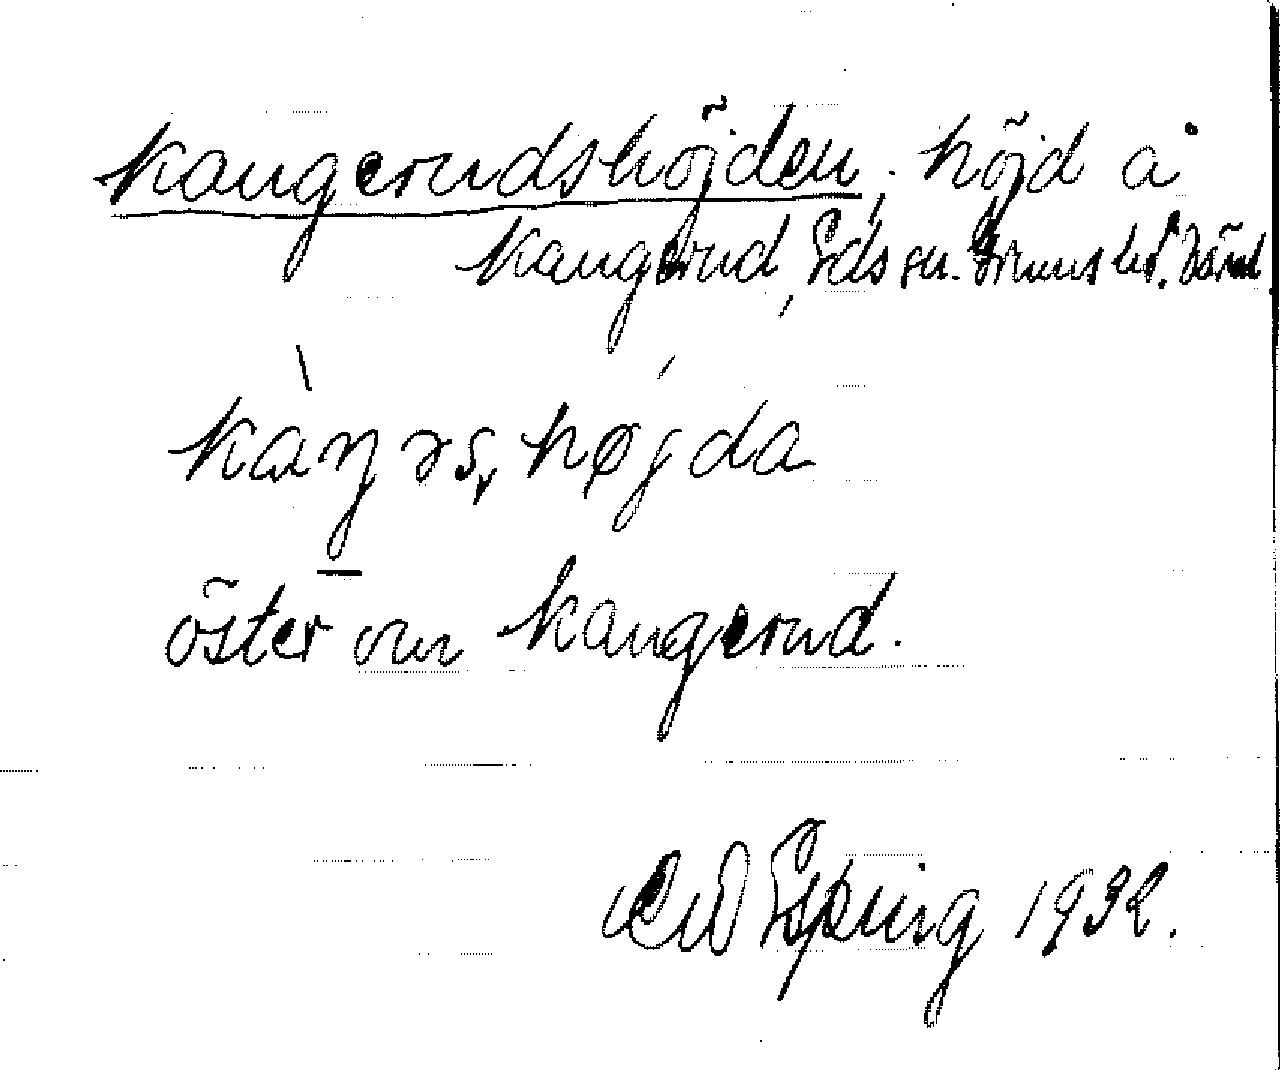 Kangerudshöjden, höjd å
Kangerud, Eds sn. Grums hd. Värml
kàŋəs, högda
öster om Kangerud.
Esping 1932.